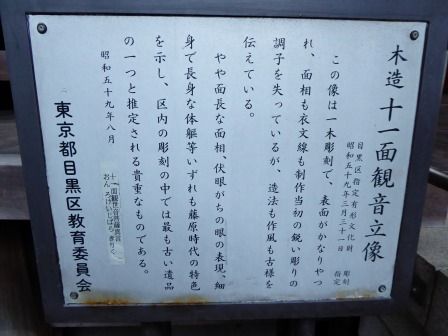 木造十一面観音立像
目黒区指定有形文化財 彫刻
昭和五十九年三月三十一日 指定
この像は一木彫刻で、表面がかなりやつ
れ、面相も衣文線も制作当初の鋭い彫りの
調子を失っているが、造法も作風も古様を
伝えている。
やや面長な面相、伏眼がちの眼の表現、細
身で長身な体躯等いずれも藤原時代の特色
を示し、区内の彫刻の中では最も古い遺品
の一つと推定される貴重なものである。
昭和五十九年八月
十一面観世音菩薩真言
おん ろけいじばら きりく
東京都目黒区教育委員会